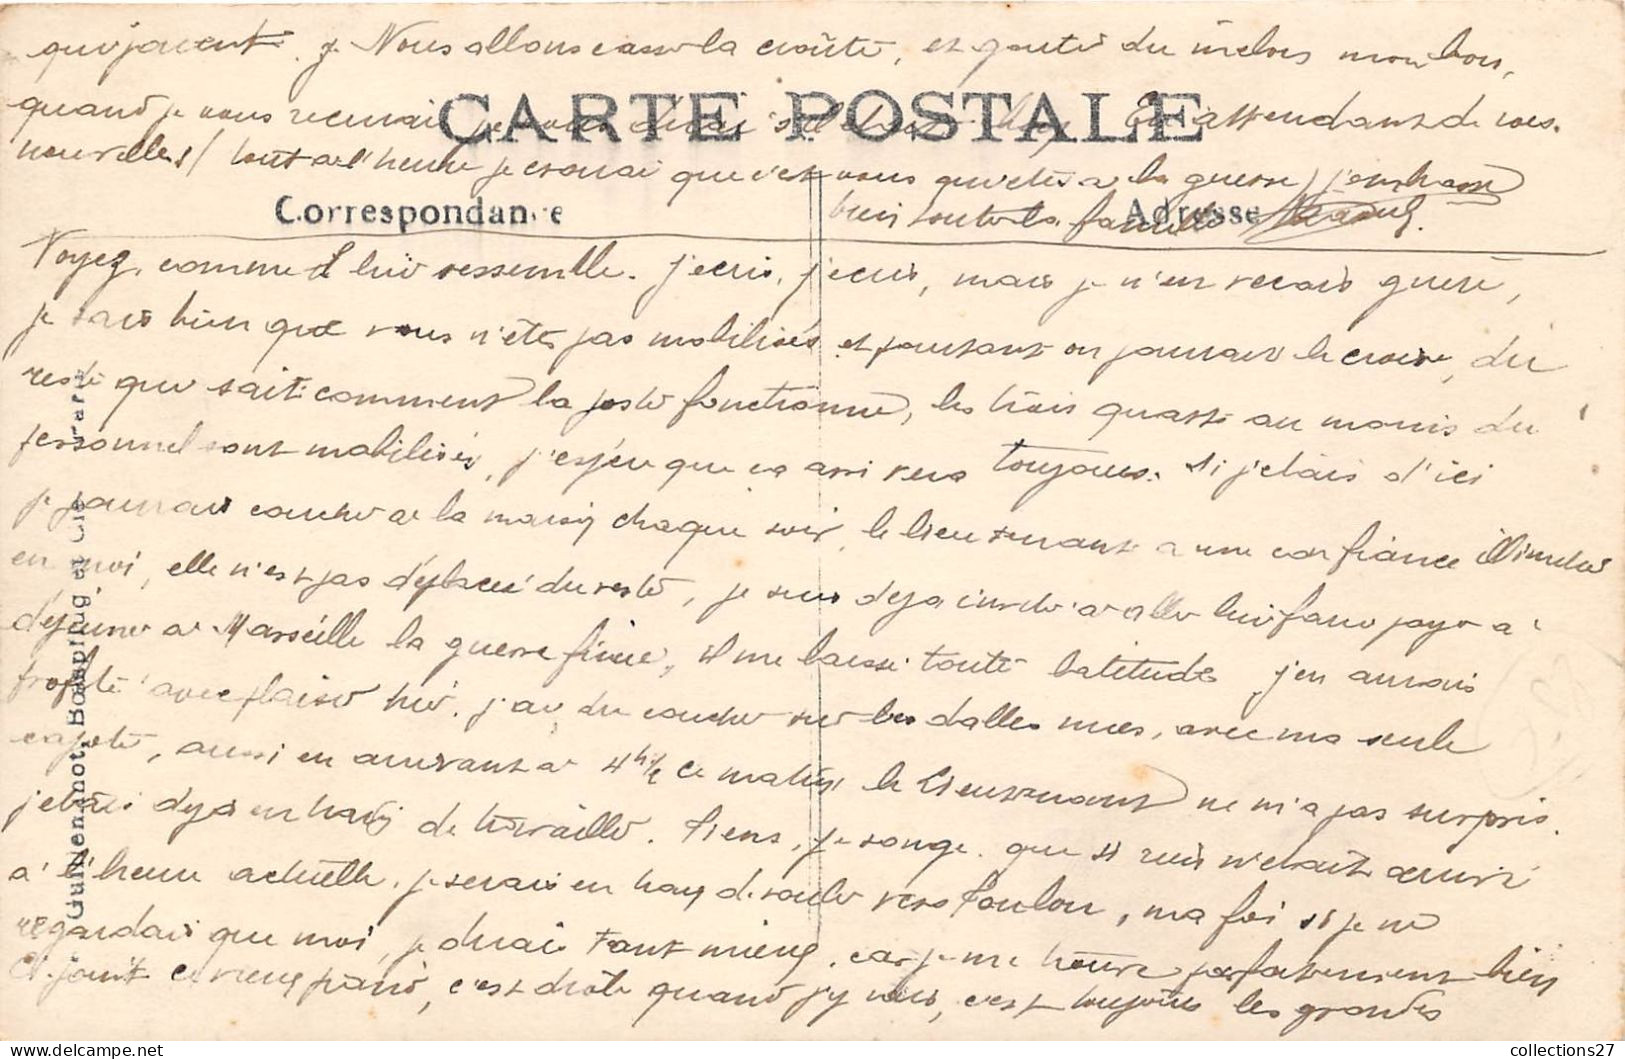 qui Nous allons casse la croûte, et goûté du melons mon bon,
quand je vous je vous dirai s'il En attendant de vos
CARTE POSTALE
nouvelles / tout a l'heure je croiai que c'est vous qu'etes a la guerre / j'embrasse
Correspondance
bien toute la famille
Adresse
Voyez, comme ressemble. J'ecris, j'ecris, mais je n'en recois guère,
je sais bien que vous n'êtes pas mobilisés et pourtant on pourrait le croire, du
reste qui sait comment la poste fonctionne, les trois quarts au moins du
personnel sont mobilisés, j'espère que ca arrivera toujours. Si j'etais d'ici
je pourrais coucher a la maison chaque soir, le lieutenant a une confiance illimitée
en moi, elle n'est pas déplacé du reste, je suis deja invite a aller lui faire payer a
déjeuner a Marseille la guerre finie, il me laisse toute latitude j'en aurais
profité avec plaisir hier. j'ai du coucher sur les dalles nues, avec ma seule
capote, aussi en arrivant a 4h½ ce matin le Lieutenant ne m'a pas surpris.
j'etais deja en train de travaille. Tiens, je songe que si rien n'etait arrivé
a l'heure actuelle, je serais en train de rouler vers Toulon, ma foi si je ne
regardais que moi, je dirais tant mieux, car je me trouve parfaitement bien
Ci joint ce vieux piano, c'est drôle quand j'y vais, c'est toujours les grandes
Guinenannot, Bæspflug et Cie
collections27